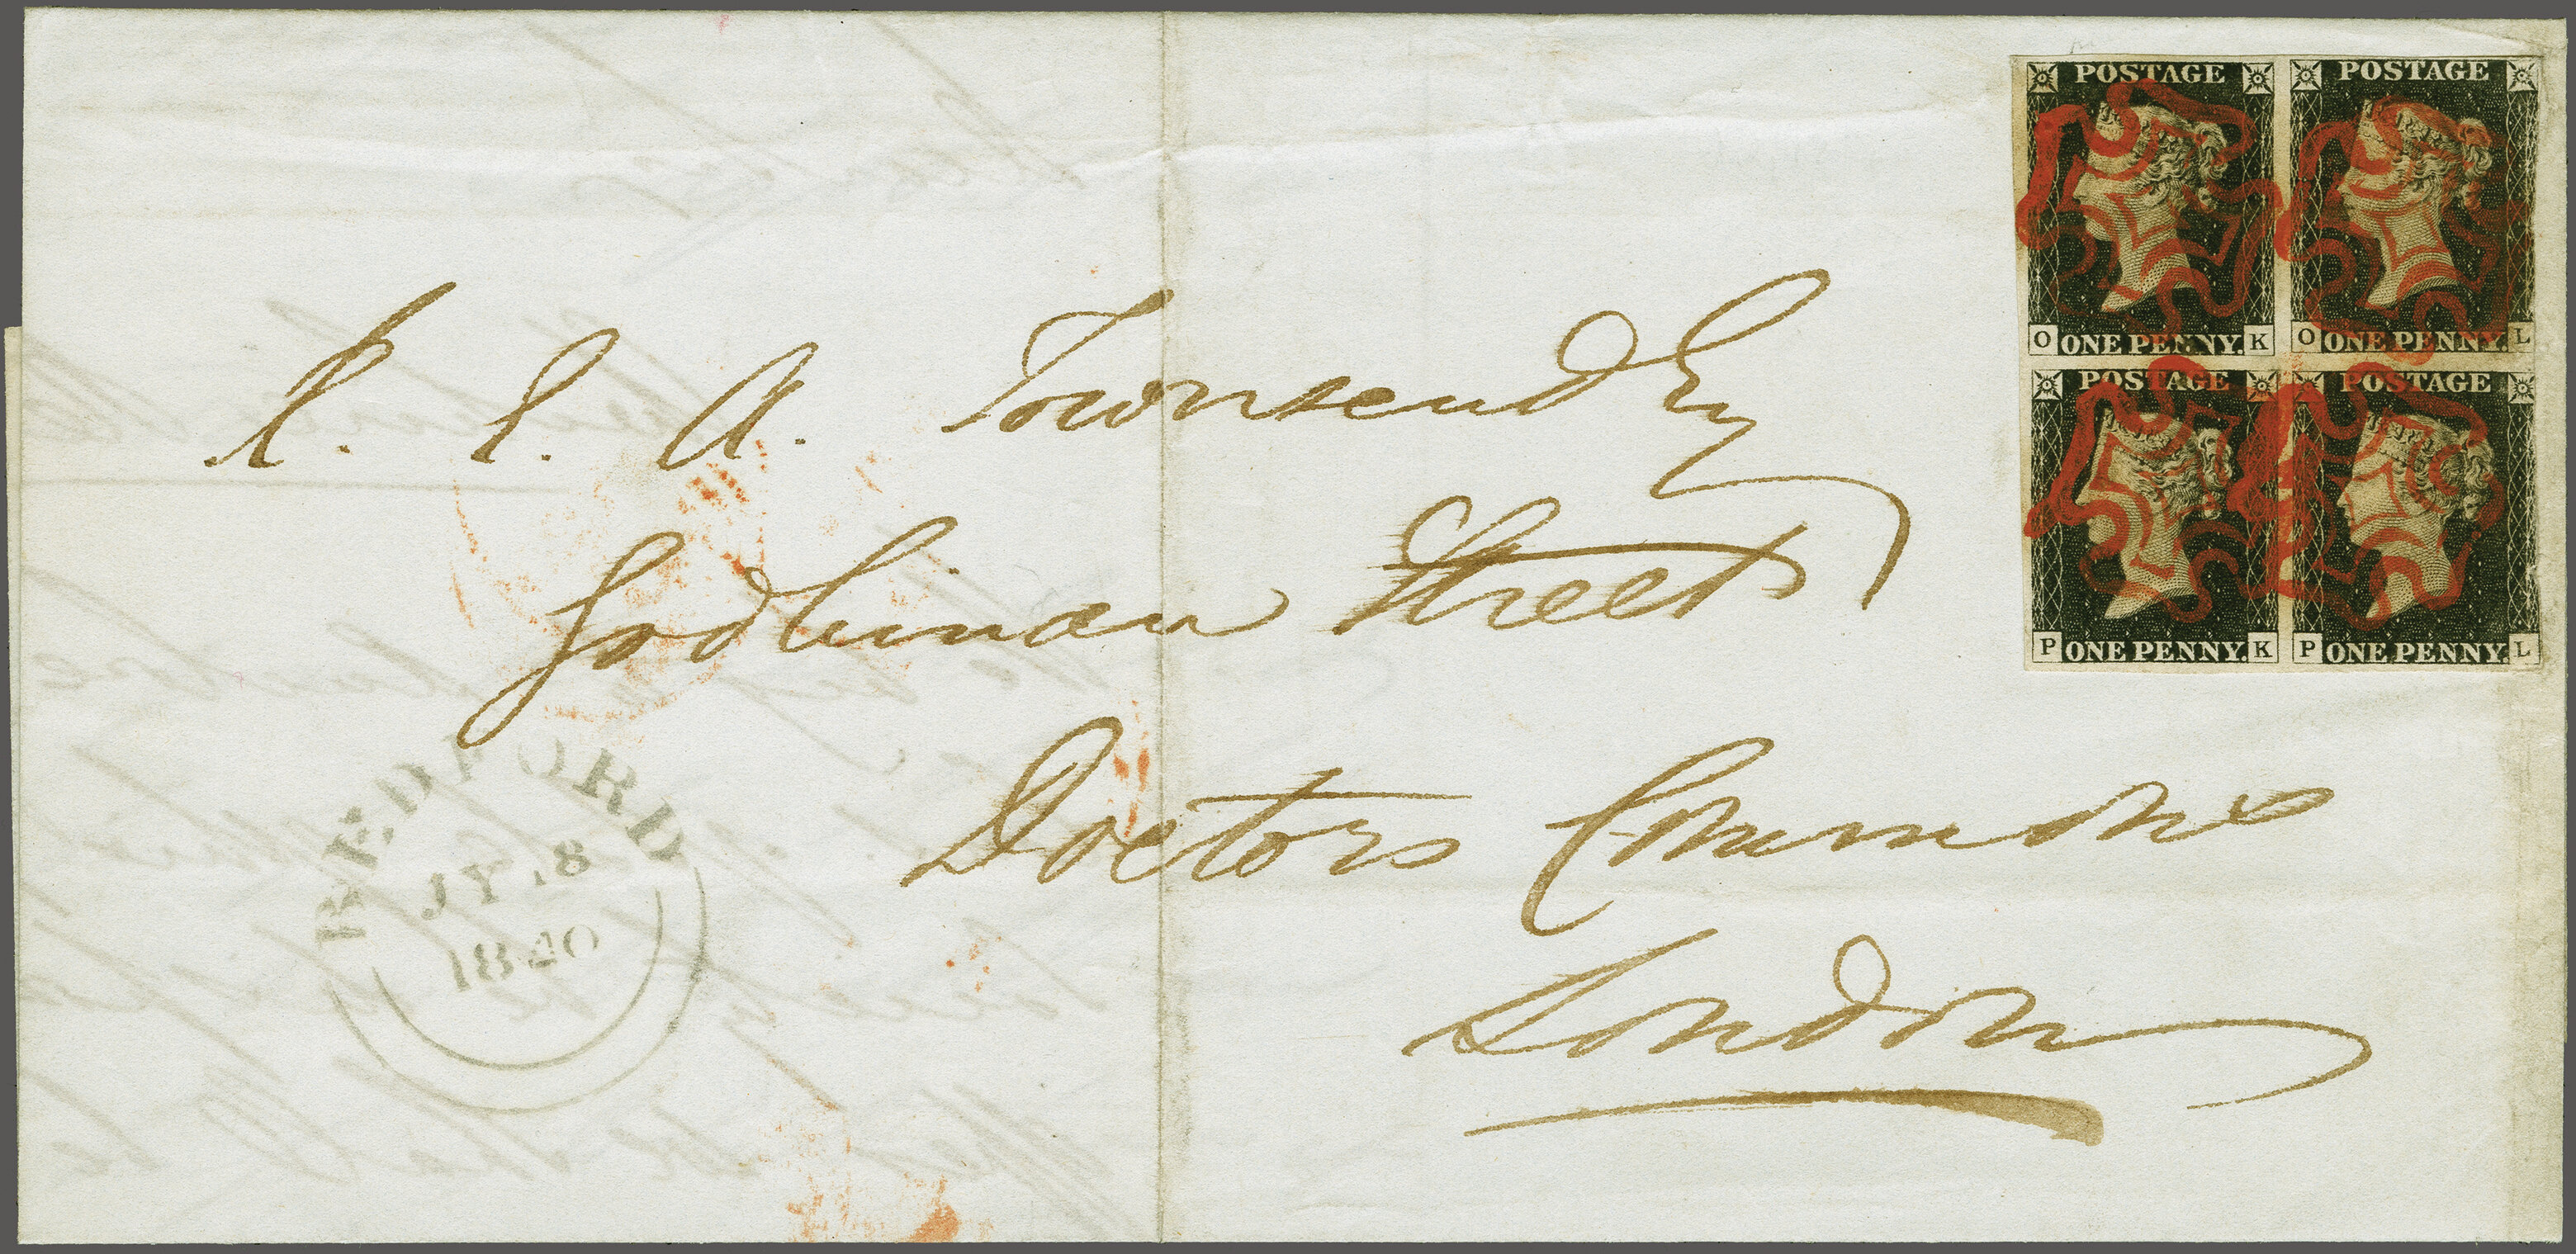 POSTAGE POSTAGE
O ONE PENNY. K O ONE PENNY. L
POSTAGE POSTAGE
P ONE PENNY. K P ONE PENNY. L
A. Townsend Esq
Godliman Street
Doctors Commons
London
BEDFORD
JY 18
1840